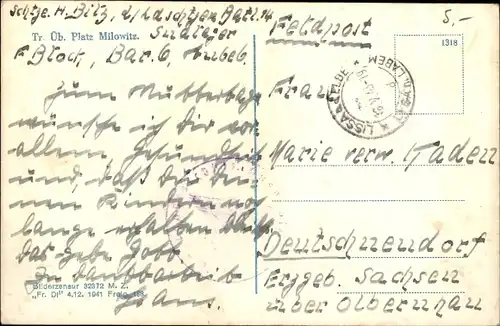 Schtze. H. Bitz, Ldsschtzen Batl.
Südlager
Tr. Üb. Platz Milowitz.
Block, Bar. 6,
Zum Muttertage
wünsche ich Dir vor
allem, Gesundheit
und, daß Du Deinen
Kindern noch
lange erhalten bleibst
das gebe Gott.
In Dankbarkeit
Hans.
Bilderzensur 32372 M. Z.
„Fr. Di" 4.12. 1941 Freig.
Feldpost
5,-
1318
LISSA
ELBE
LABEM
Frau
Marie verw. Kaden
Deutschneudorf
Erzgeb. Sachsen
über Olbernhau